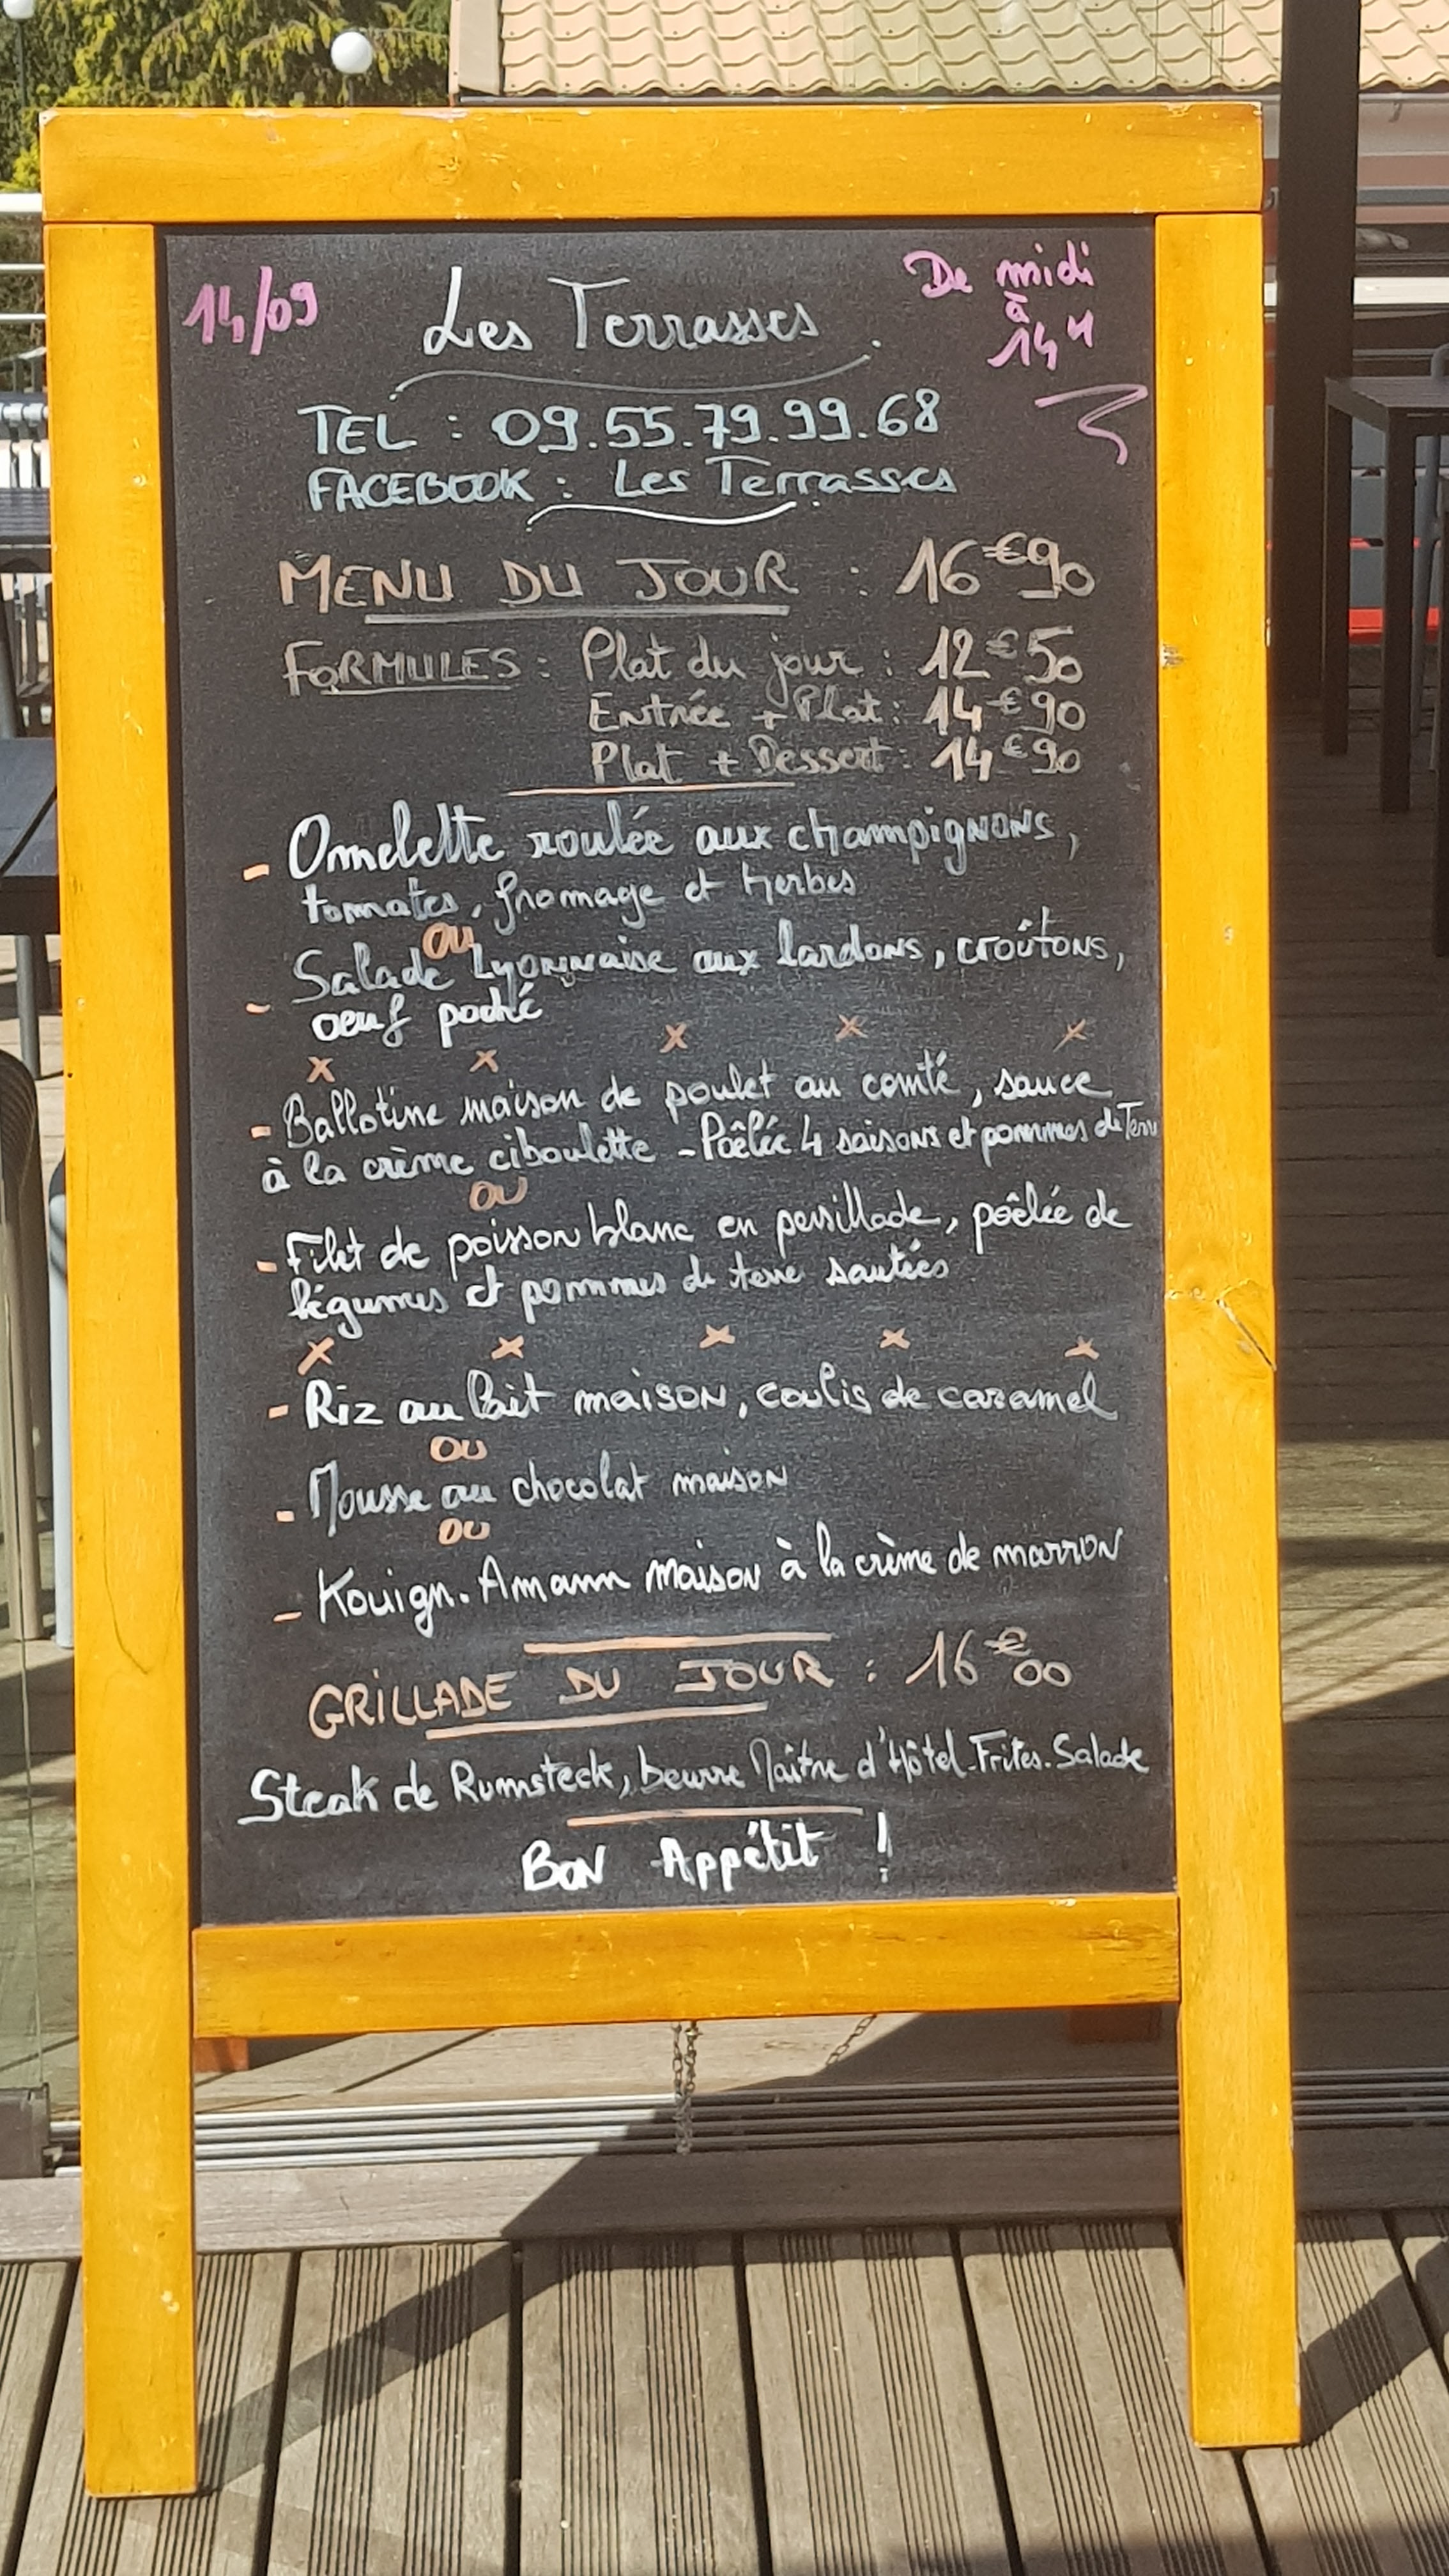 14/09
Les Terrasses.
De midi
à
14H
TEL : 09.55.79.99.68
FACEBOOK : Les Terrasses
MENU DU JOUR : 16€90
FORMULES : Plat du jour : 12€50
Entrée + Plat : 14€90
Plat + Dessert : 14€90
- Omelette roulée aux champignons,
tomates, fromage et herbes
OU
- Salade Lyonnaise aux lardons, croûtons,
oeuf poché
x x x x x
- Ballotine maison de poulet au comté, sauce
à la crème ciboulette - Poêlée 4 saisons et pommes de Terre
OU
- Filet de poisson blanc en persillade, poêlée de
légumes et pommes de terre sautées
x x x x x
- Riz au lait maison, coulis de caramel
OU
- Mousse au chocolat maison
OU
- Kouign-Amann maison à la crème de marron
GRILLADE DU JOUR : 16€00
Steak de Rumsteck, beurre Maître d'Hôtel-Frites-Salade
BON Appétit !